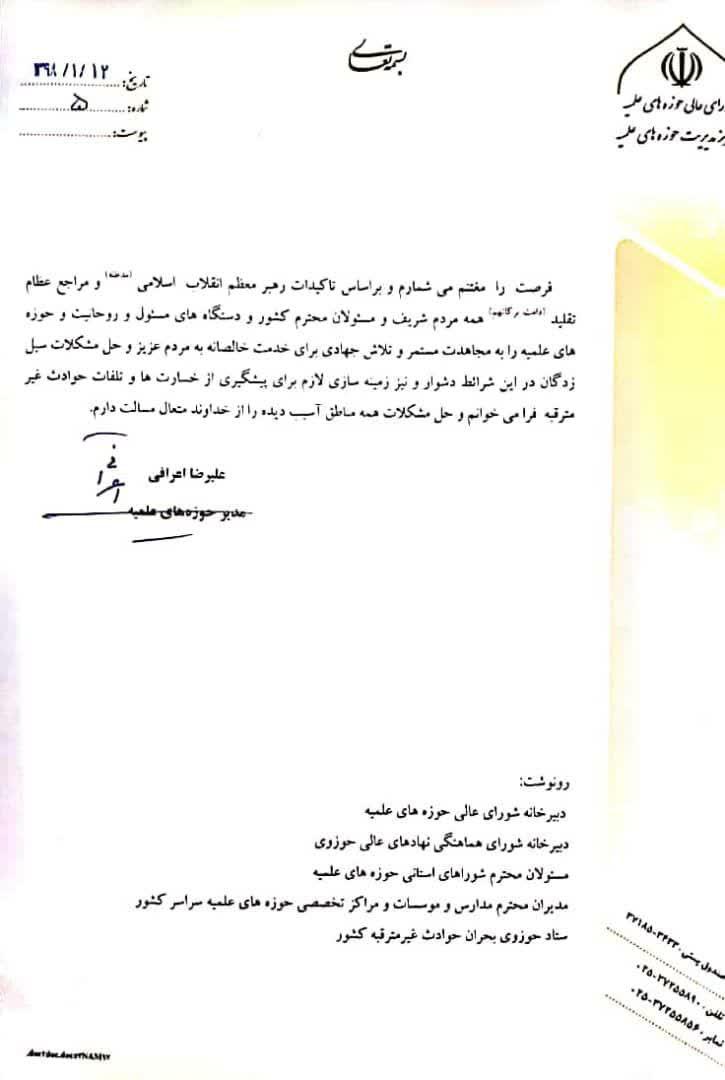 بسمه تعالی
شورای عالی حوزه های علمیه
مرکز مدیریت حوزه های علمیه
تاریخ: ۳۹۸/۱/۱۲
شماره: ۵۵
پیوست:
فرصت را مغتنم می شمارم و براساس تاکیدات رهبر معظم انقلاب اسلامی (مدظله) و مراجع عظام
تقلید (دامت برکاتهم) همه مردم شریف و مسئولان محترم کشور و دستگاه های مسئول و روحانیت و حوزه
های علمیه را به مجاهدت مستمر و تلاش جهادی برای خدمت خالصانه به مردم عزیز و حل مشکلات سیل
زدگان در این شرائط دشوار و نیز زمینه سازی لازم برای پیشگیری از خسارت ها و تلفات حوادث غیر
مترقبه فرا می خوانم و حل مشکلات همه مناطق آسیب دیده را از خداوند متعال مسالت دارم.
علیرضا اعرافی
مدیر حوزه‌های علمیه
رونوشت:
دبیرخانه شورای عالی حوزه های علمیه
دبیرخانه شورای هماهنگی نهادهای عالی حوزوی
مسئولان محترم شوراهای استانی حوزه های علمیه
مدیران محترم مدارس و موسسات و مراکز تخصصی حوزه های علمیه سراسر کشور
ستاد حوزوی بحران حوادث غیرمترقبه کشور
صندوق پستی: ۳۷۱۸۵-۳۶۳۳
تلفن: ۰۲۵-۳۷۲۵۵۸۹۰
نمابر: ۰۲۵-۳۷۲۵۵۸۵۶